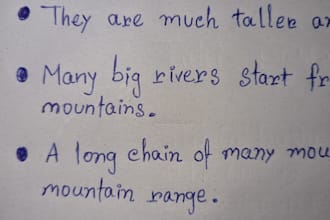 • They are much taller
• Many big rivers start
mountains.
• A long chain of many
mountain range.